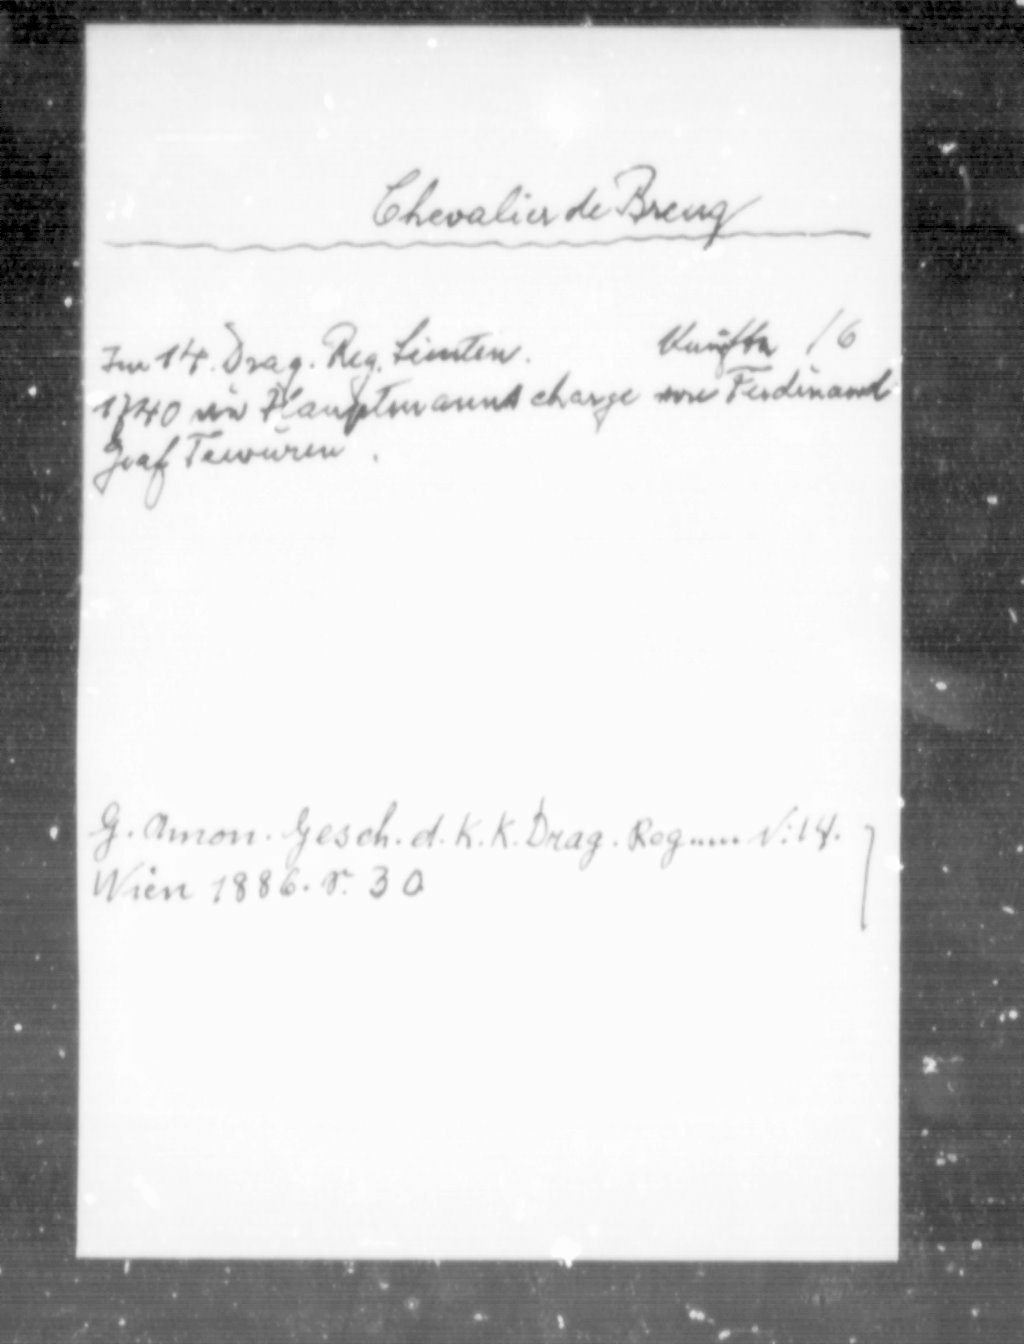 Chevalier de Breuq
Im 14. Drag. Reg. Lieuten. Kaufte /6
1740 die Hauptmanns charge von Ferdinand
Graf
G. Amon. Gesch. d. K. K. Drag. Reg..... N: 14.
Wien 1886. S. 30